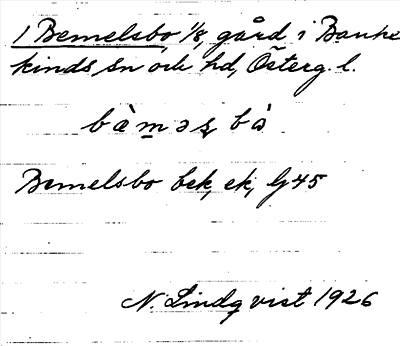 1 Bemelsbo, 1/8, gård i Banke
kinds sn och hd, Österg. l.
bàməs̨ bȧ̀
Bemelsbo bek, ek, G45
N. Lindqvist 1926